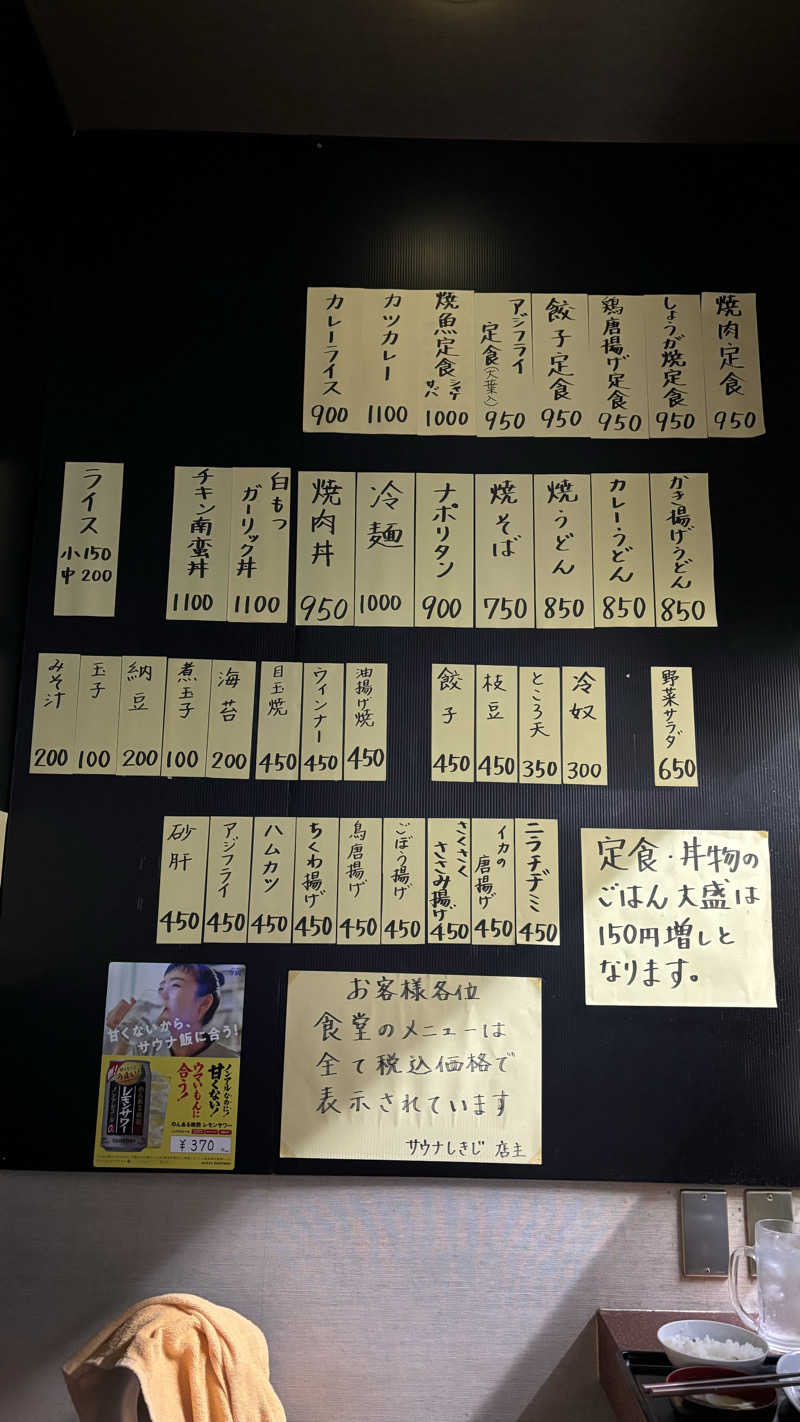 焼肉定食 950
しょうが焼定食 950
鶏唐揚げ定食 950
餃子定食 950
アジフライ
定食(大葉入) 950
焼魚定食 シャケ サバ 1000
カツカレー 1100
カレーライス 900
かき揚げうどん 850
カレーうどん 850
焼うどん 850
焼そば 750
ナポリタン 900
冷麺 1000
焼肉丼 950
白もつ
ガーリック丼 1100
チキン南蛮丼 1100
ライス
小150
中200
野菜サラダ 650
冷奴 300
ところ天 350
枝豆 450
餃子 450
油揚げ焼 450
ウィンナー 450
目玉焼 450
海苔 200
煮玉子 100
納豆 200
玉子 100
みそ汁 200
ニラチヂミ 450
イカの
唐揚げ 450
さくさく
ささみ揚げ 450
ごぼう揚げ 450
鳥唐揚げ 450
ちくわ揚げ 450
ハムカツ 450
アジフライ 450
砂肝 450
定食・丼物の
ごはん大盛は
150円増しと
なります。
お客様各位
食堂のメニューは
全て税込価格で
表示されています
サウナしきじ 店主
甘くないから、
サウナ飯に合う!
ノンアルなのに!
甘くない!
ウマいもんに
合う!
のんある晩酌
レモンサワー
のんある晩酌 レモンサワー
¥370